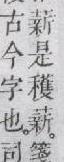 薪是穫薪。箋
古今字也。司